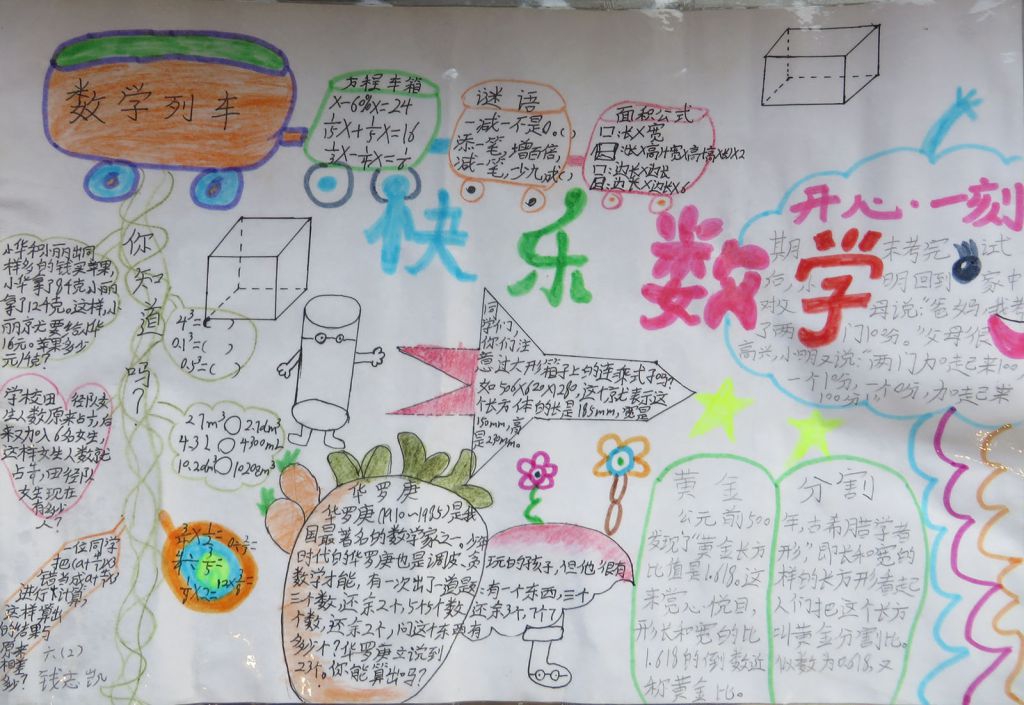 数学列车
方程车箱
X-60%X=24
谜语
一减一不是0。( )
添一笔,增百倍,
减一笔,少九成( )
面积公式
口:长X宽
口:边长X边长
快乐数学
开心·一刻
期末考完试
后,小明回到家中
对父母说:“爸妈,我考
了两门100分。”父母很
高兴,小明又说:“两门加起来100,
一个10分,一个0分,加起来
你知道吗?
小华和小丽出同
样多的钱买苹果,
小华拿了84克,小丽
拿了124克。这样,小
丽又要给小华
16元。苹果多少
元/克?
4³=( )
0.1³=( )
0.5³=( )
学校田径队女
生人数原来占
来又加入6名女生,
这样女生人数就
占田径队
女生现在
有多少
人?
2.7m³○2.7dm³
4.3L○4300mL
同学们,
你们注
意过大形箱子上的连乘式子吗?
长方体的长是
一位同学
把
错当成
进行计算,
这样算出
的结果与
原来
相差
多少?
六(2)
钱志凯
华罗庚
华罗庚(1910~1985)是我
国最著名的数学家之一。少年
时代的华罗庚也是调皮、贪玩的孩子,但他很有
数学才能,有一次出了一道题:有一个东西,三个
三个数,还余2个,5个5个数,还余3个,7个7
个数,还余2个,问这个东西有
多少个?华罗庚立说到
23个。你能算出吗?
黄金分割
公元前500年,古希腊学者
发现了“黄金长方形”,即长和宽的
比值是1.618。这样的长方形看起
来赏心悦目,人们把这个长方
形长和宽的比叫黄金分割比。
1.618的倒数近似数为0.618,又
称黄金比。